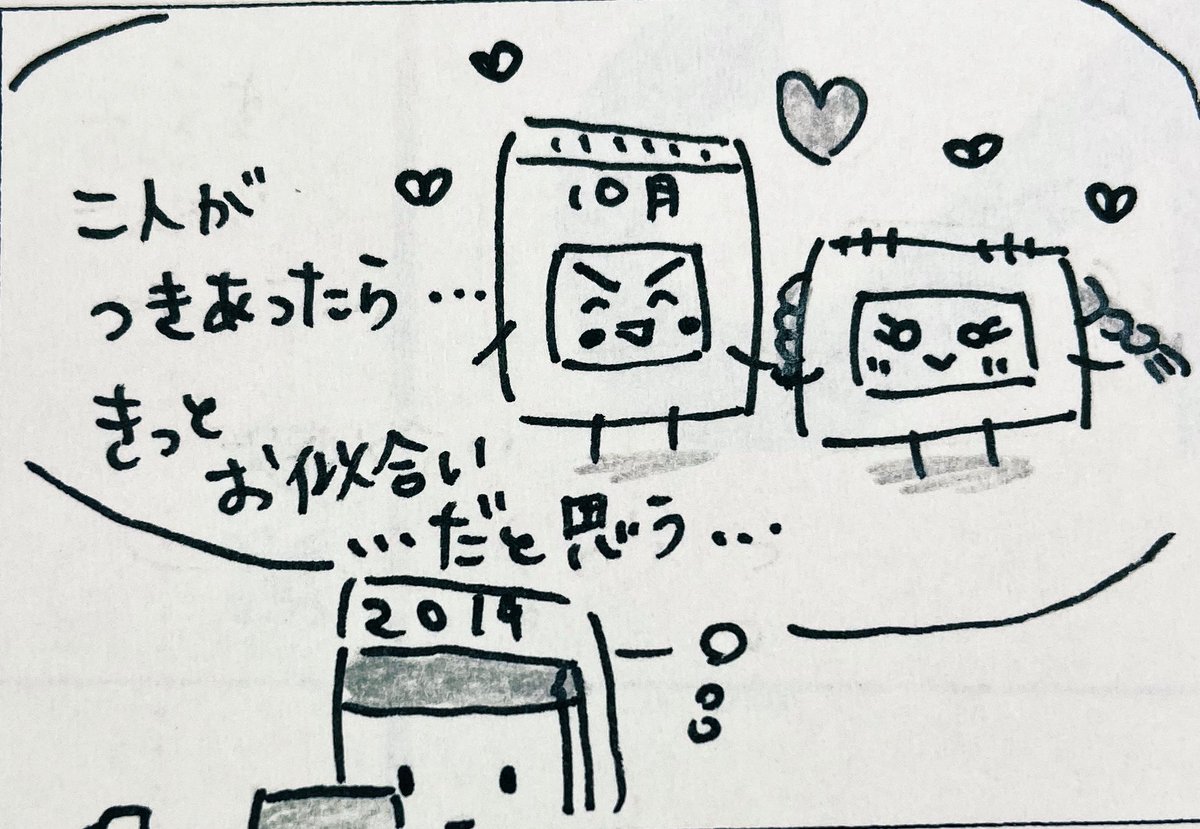 二人が
つきあったら…
きっと
お似合い
…だと思う…
10月
2019